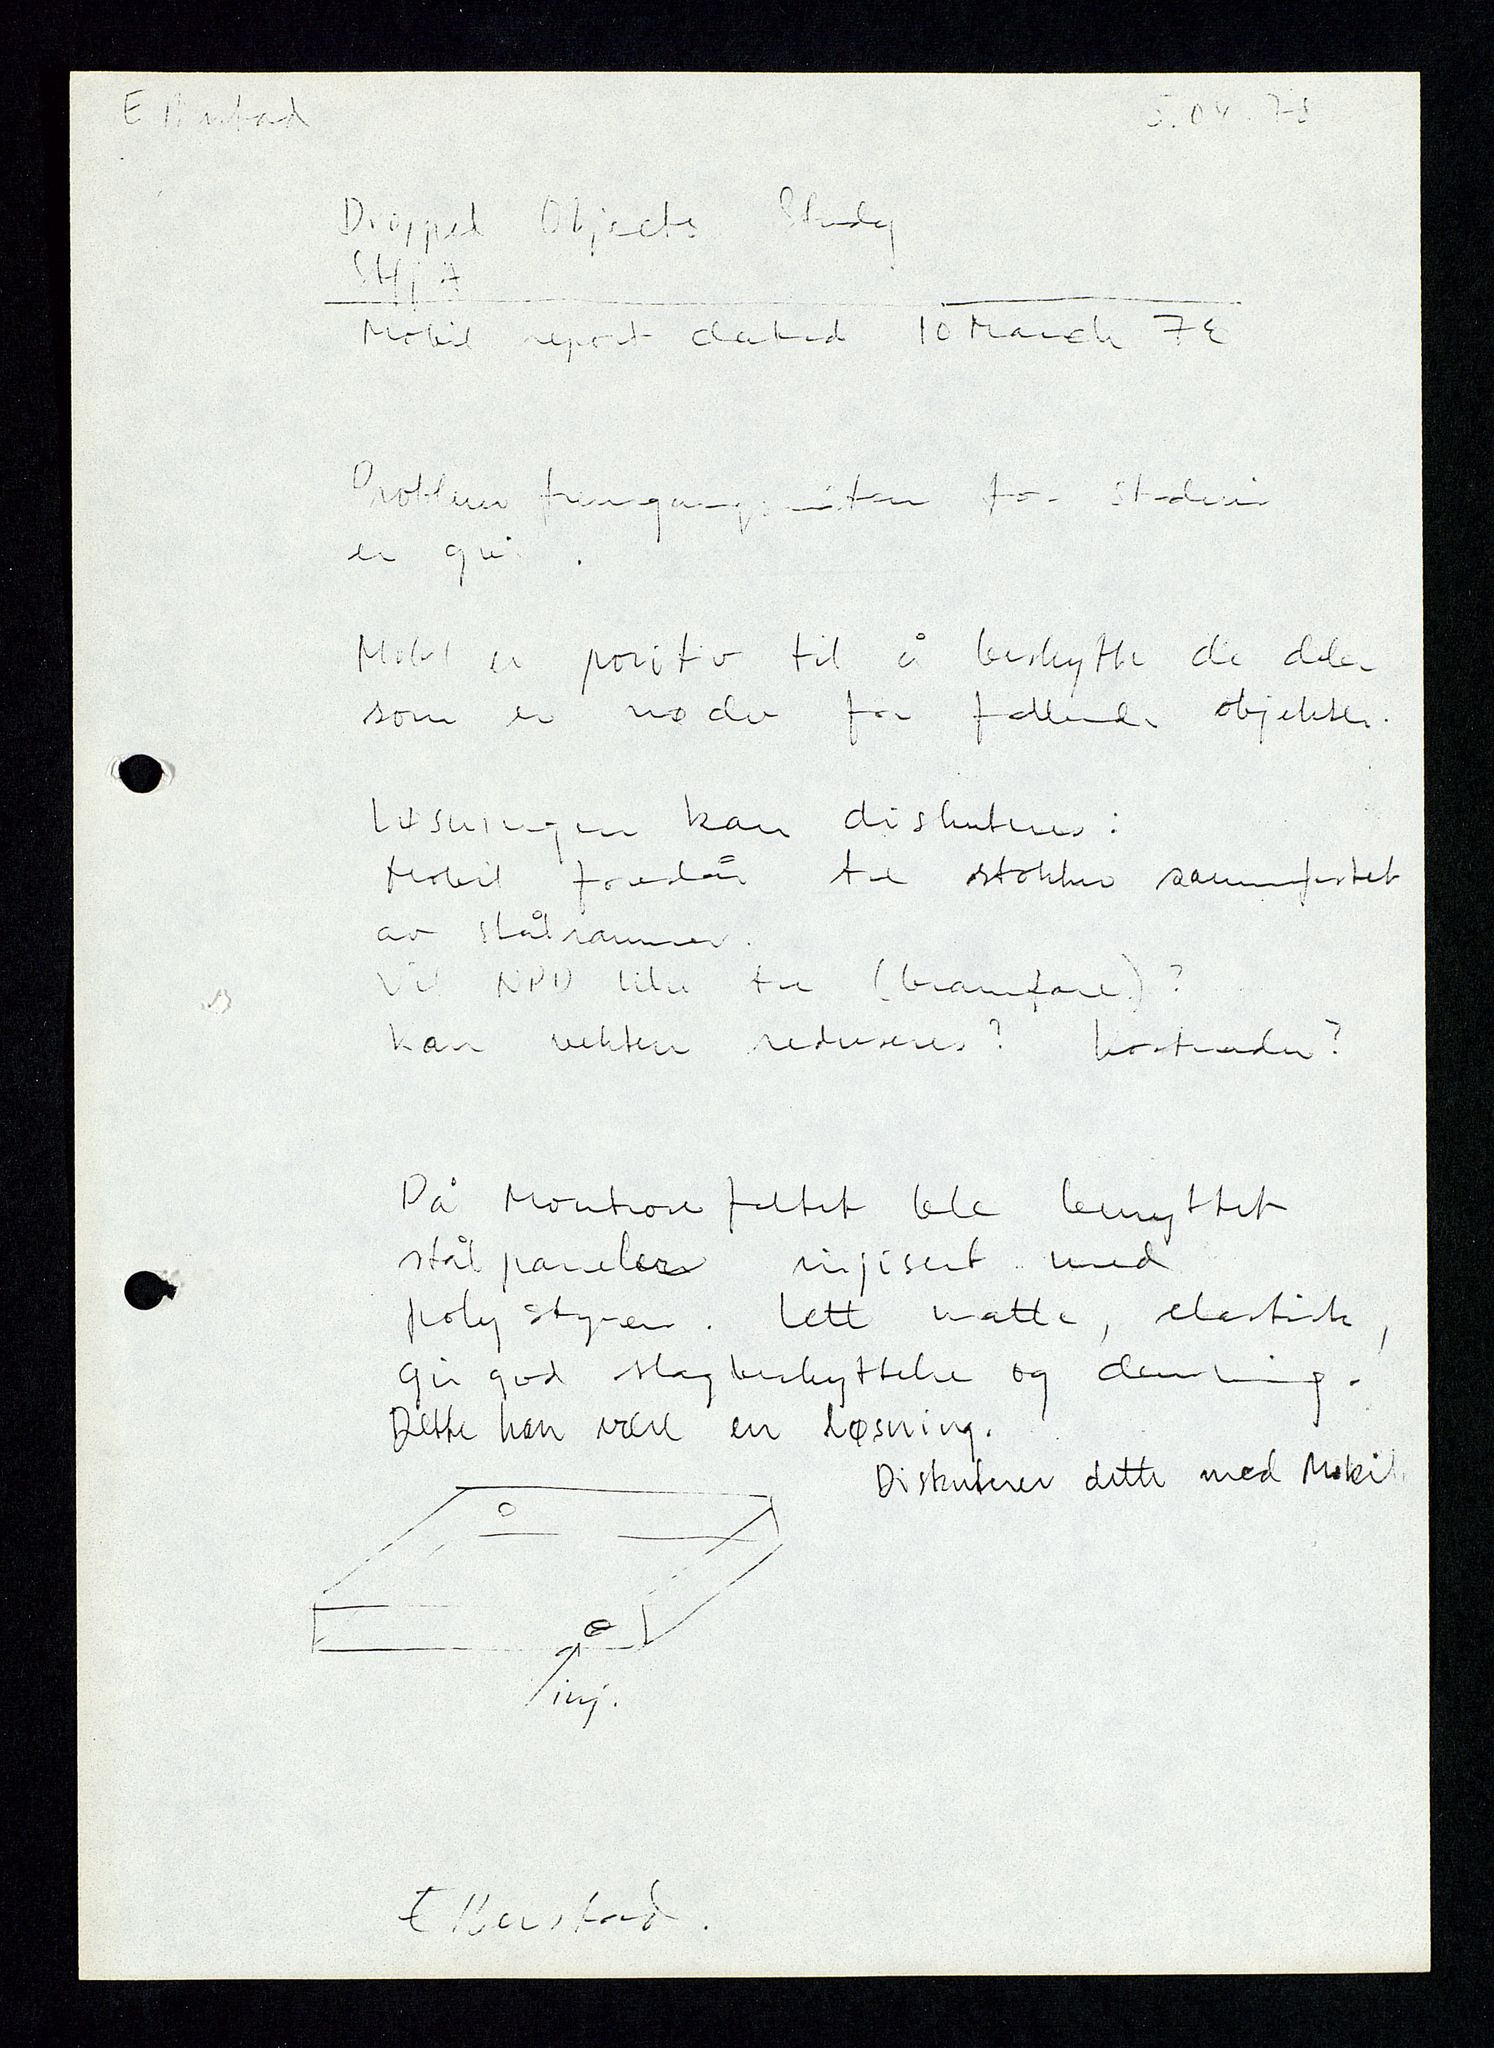 5.04.78
Dropped Objects Study
Mobil report dated 10 March 78
Problem fremgangsmåten for studien
er
Mobil er positiv til å beskytte de deler
som er for fallende objekter.
Løsningen kan diskuteres:
Mobil foreslår tre stokker sammenfestet
av stålrammer.
Vil NPD like tre (brannfare)?
Kan vekten reduseres? Kostnader?
På Montrose feltet ble benyttet
stålpaneler injisert med
polystyren. Lett matte, elastisk,
Gir god slagbeskyttelse og demning.
Dette kan være en løsning.
Diskuterer dette med Mobil.
inj.